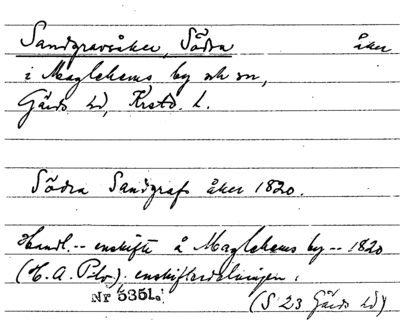 Sandgravsåker, Södra åker
i Maglehems by och sn,
Gärds hd, Krstd. l.
Södra Sandgrafs åker 1820.
Handl. -- enskifte å Maglehems by -- 1820
(H. A. Pilo). enskiftesdelningen.
Nr 535L.
(S 23 Gärds hd)